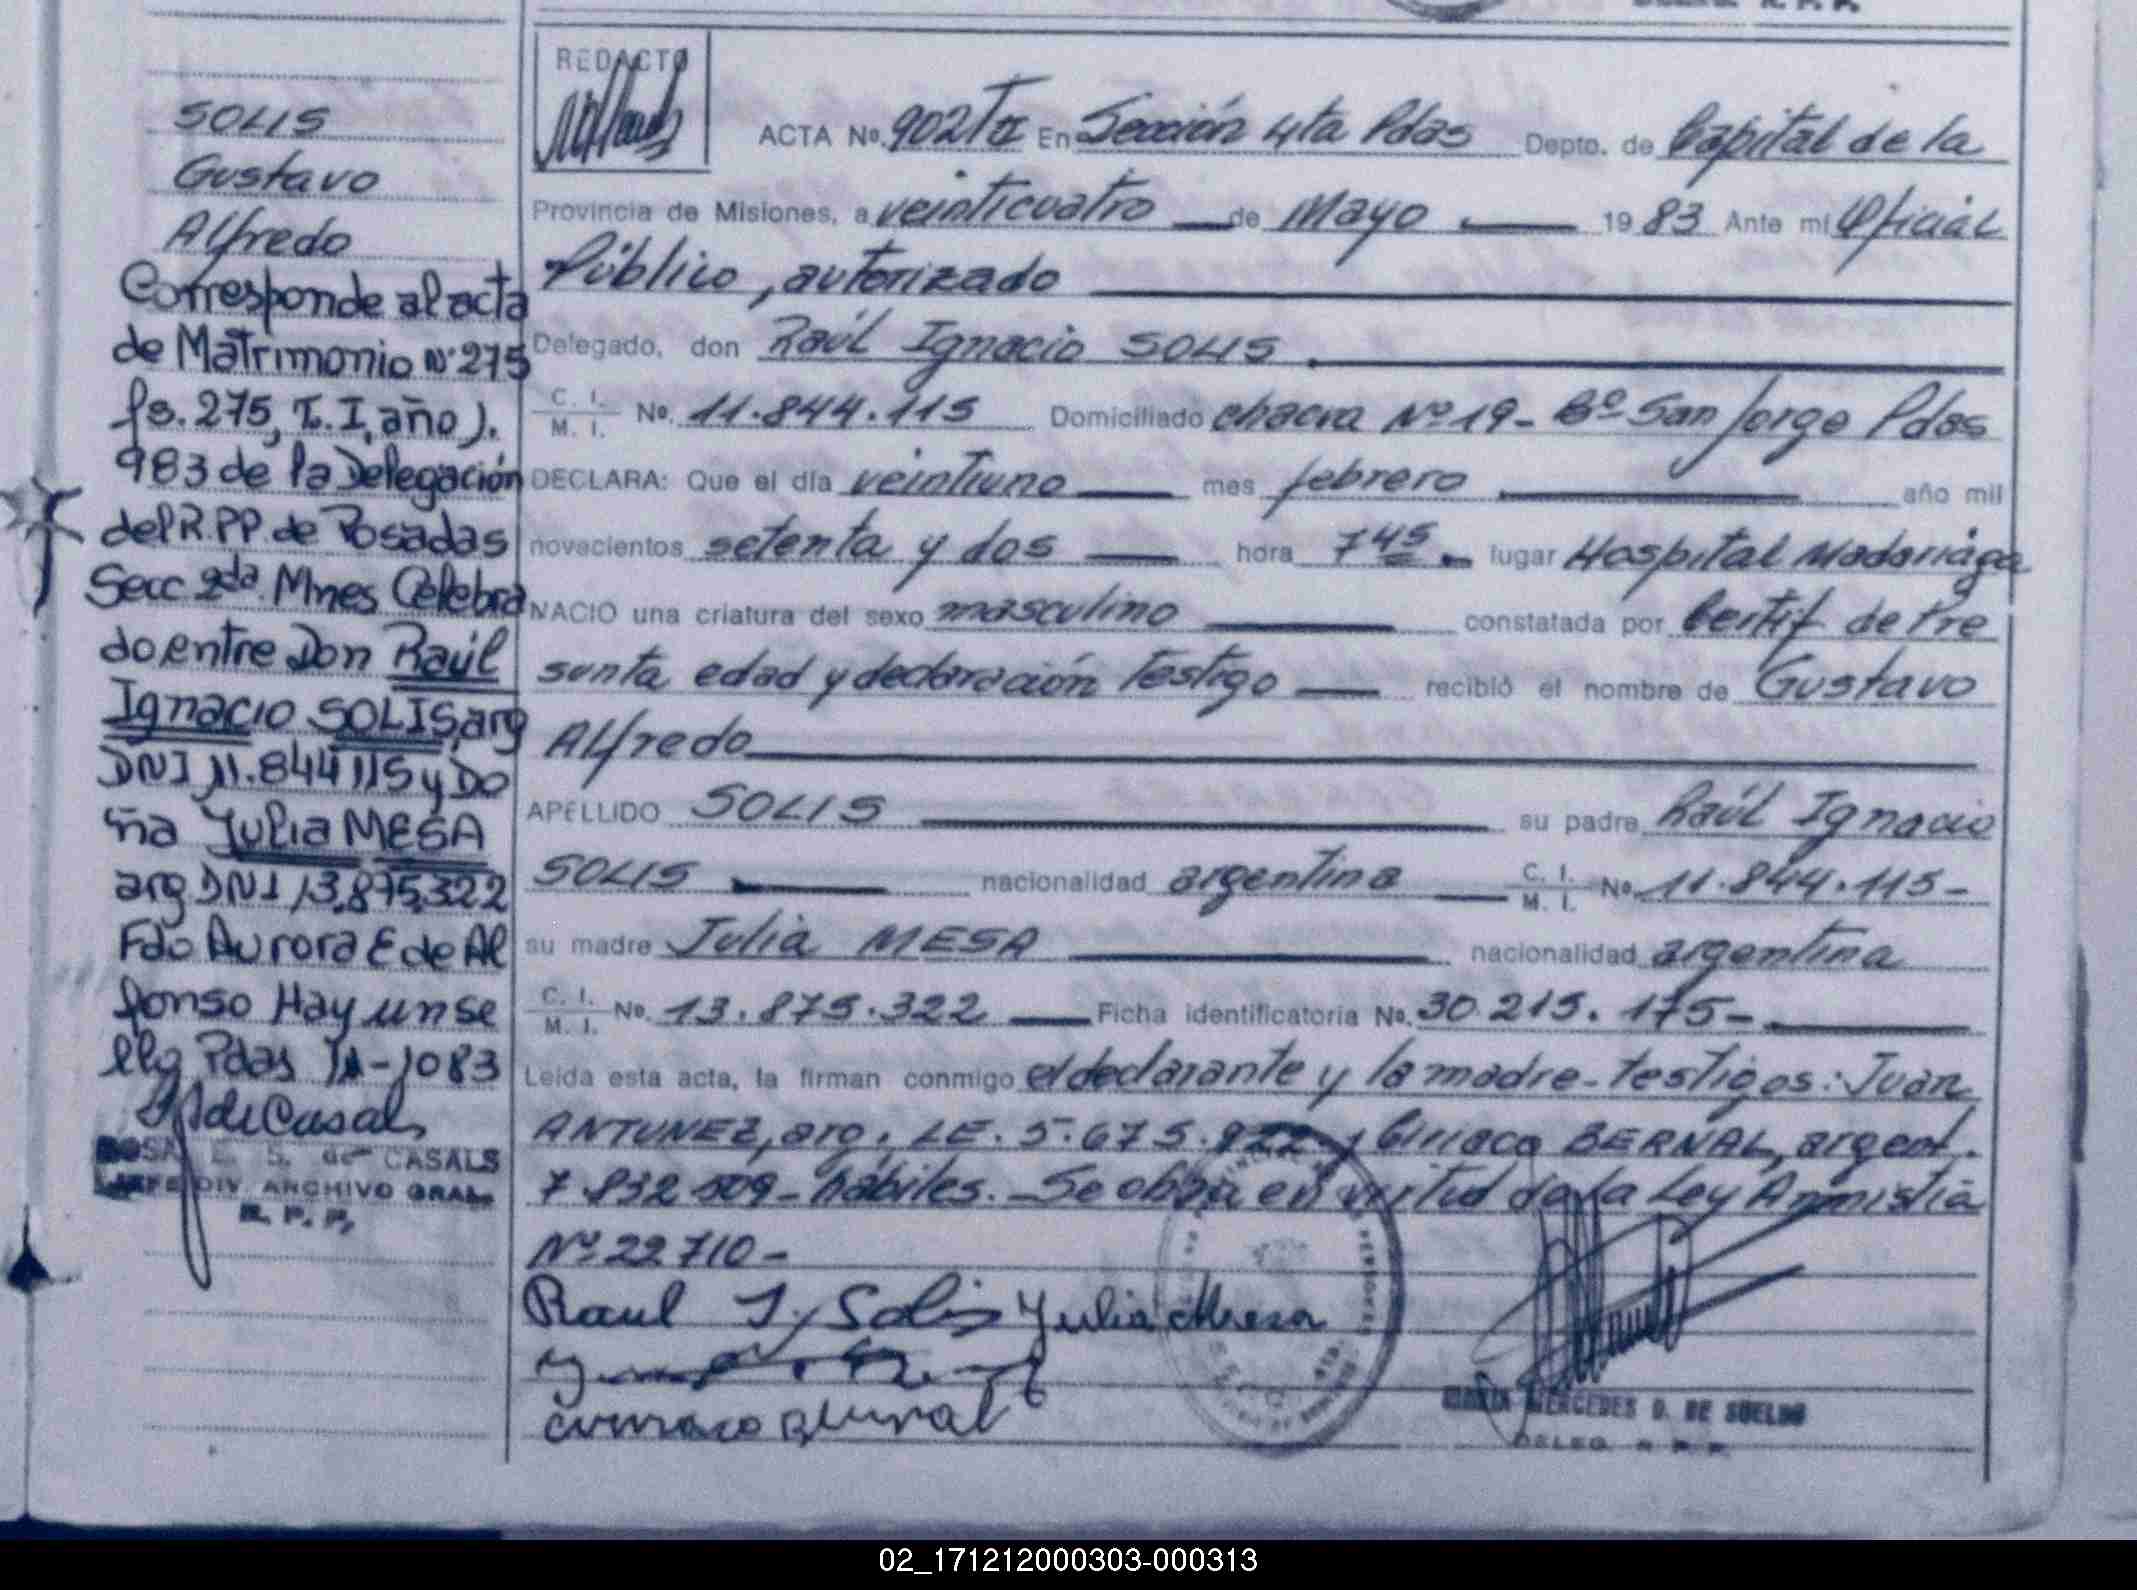 SOLIS
Gustavo
Alfredo
Corresponde al acta
de Matrimonio Nº 275
fs. 275, T. I, año 1.
983 de la Delegación
del R.PP. de Posadas
Secc 2da. Mnes Celebra
do entre Don Raúl
Ignacio SOLIS, arg
DNI 11.844 115 y Do
ña Julia MESA
arg DNI 13.875.322
Fdo Aurora E de Al
fonso Hay un se
llo Pdas
de Casals
ROSA E. S. de CASALS
JEFE DIV. ARCHIVO GRAL.
R. P. P.
REDACTO
ACTA No. 902 En Sección 4ta Pdas Depto. de Capital de la
Provincia de Misiones, a veinticuatro de Mayo 1983 Ante mi Oficial
Público, autorizado
Delegado, don Raúl Ignacio SOLIS
C. I.
M. I. No. 11.844.115 Domiciliado chacra Nº 19- Bº San Jorge Pdas
DECLARA: Que el día veintiuno mes febrero año mil
novecientos setenta y dos hora 7 45 lugar Hospital Madariaga
NACIO una criatura del sexo masculino constatada por Certif de Pre
sunta edad y declaración testigo recibió el nombre de Gustavo
Alfredo
APELLIDO SOLIS su padre Raúl Ignacio
SOLIS nacionalidad argentina C. I.
M. I. No. 11.844.115-
su madre Julia MESA nacionalidad argentina
C. I.
M. I. No. 13.875.322 Ficha identificatoria No. 30.215.175-
Leída esta acta, la firman conmigo el declarante y la madre- testigos: Juan
ANTUNEZ, arg, LE. 5.675. y Ciriaco BERNAL, argent.
7.832.509- hábiles.- Se obra en virtud de la Ley Amnistia
Nº 22710-
Raul I, Solis Julia Mesa
MERCEDES D. DE SUELDO
DELEG. R. P. P.
02_171212000303-000313